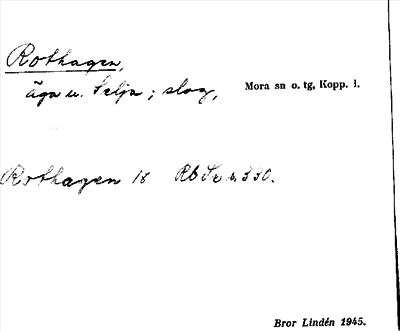 Rothagen,
äga u. Selja ; slog, Mora sn o. tg, Kopp. l.
Rothagen 18 Rb Se s. 330.
Bror Lindén 1945.